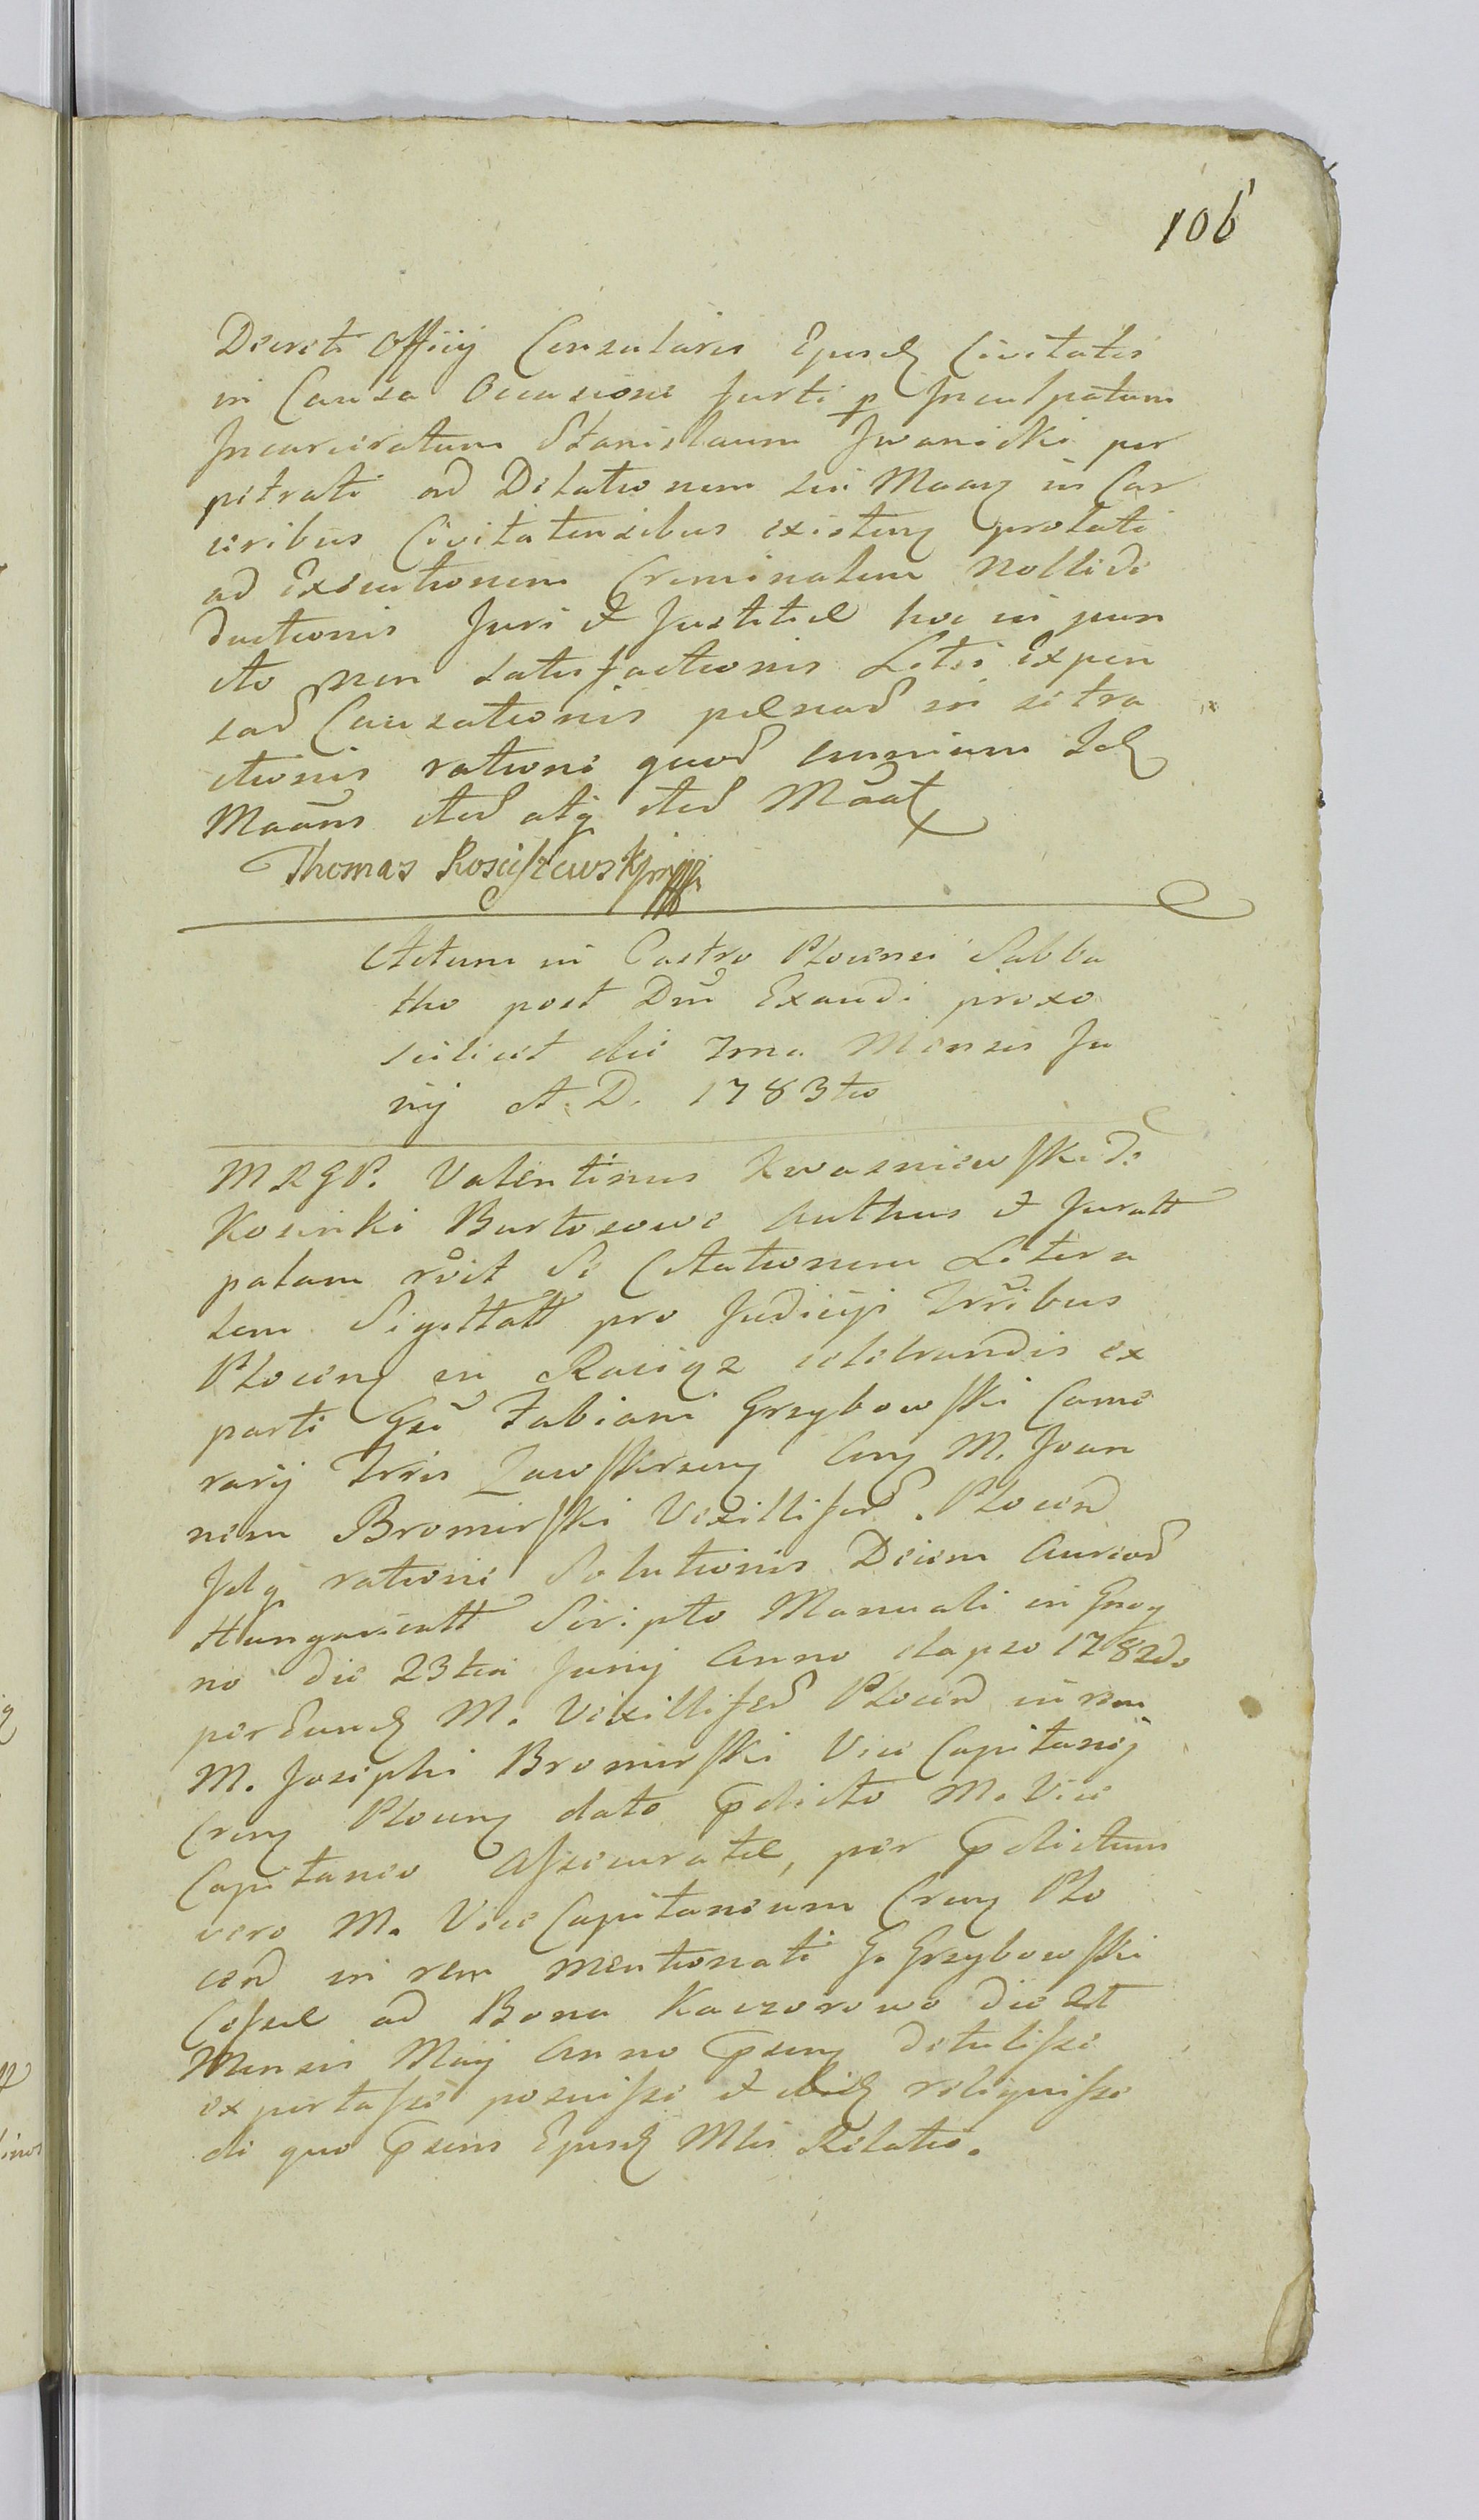 106
Decreti Officij Consularis Ejusd Civitatis
in Causa Occasione furti p Inculpatum
Incarceratum Stanislaum Iwanicki per
petrati ad Delationem sui Maay in Car
ceribus Civitatensibus existeny prolati
ad Executionem Criminalem Nollide
ductionis Juri et Justitiæ hoc in pun
cto non satisfactionis Litis Expen
sarū Causationis pænarū in se tra
ctionis ratione quorū omnium Id
Maans cted atq cted Maat
Thomas Rościszewski
Actum in Castro Plocensi Sabba
tho post Dm Exaudi proxo
scilicet die 7ma Mensis Ju
nij A. D. 1783tio
M R G P. Valentinus Kwasniewski de
Kosinki Bartosowe Authus et Juratt
palam rcvit Se Citationem Litera
lem Sigillatt pro Judicijs Trribus
Ploceny in Raciąz celebrandis ex
parte Gsi Fabiani Grzybowski Came
rarij Trris Zawskrzeny Cny M. Joan
nem Bromirski Vexilliferū. Plocen
Idq ratione Solutionis Decem Aureorū
Hungaricatt Scripto Manuali in Gnoy
no die 23tia Junij Anno elapso 1782do
per Eund M. Vexilliferū Plocen in rem
M. Josephi Bromirski Vice Capitanej
Creny Ploceny dato prædicto M. Vice
Capitaneo Assecuratæ, per prædictum
vero M. Vice Capitaneum Creny Plo
cen in rem mentionati G. Grzybowski
Cessæ ad Bona Kaczorowo die 21
Mensis Maij Anno præseny detulisse
exportasse posuisse et ibid reliquisse
de quo præsens Ejusd Mlis Relatio.